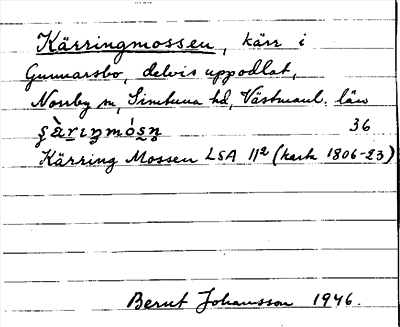 Kärringmossen, kärr i
Gunnarsbo, delvis uppodlat,
Norrby sn, Simtuna hd, Västmanl. län
36
Kärring Mossen LSA 11² (karta 1806-23)
Bernt Johansson 1946.